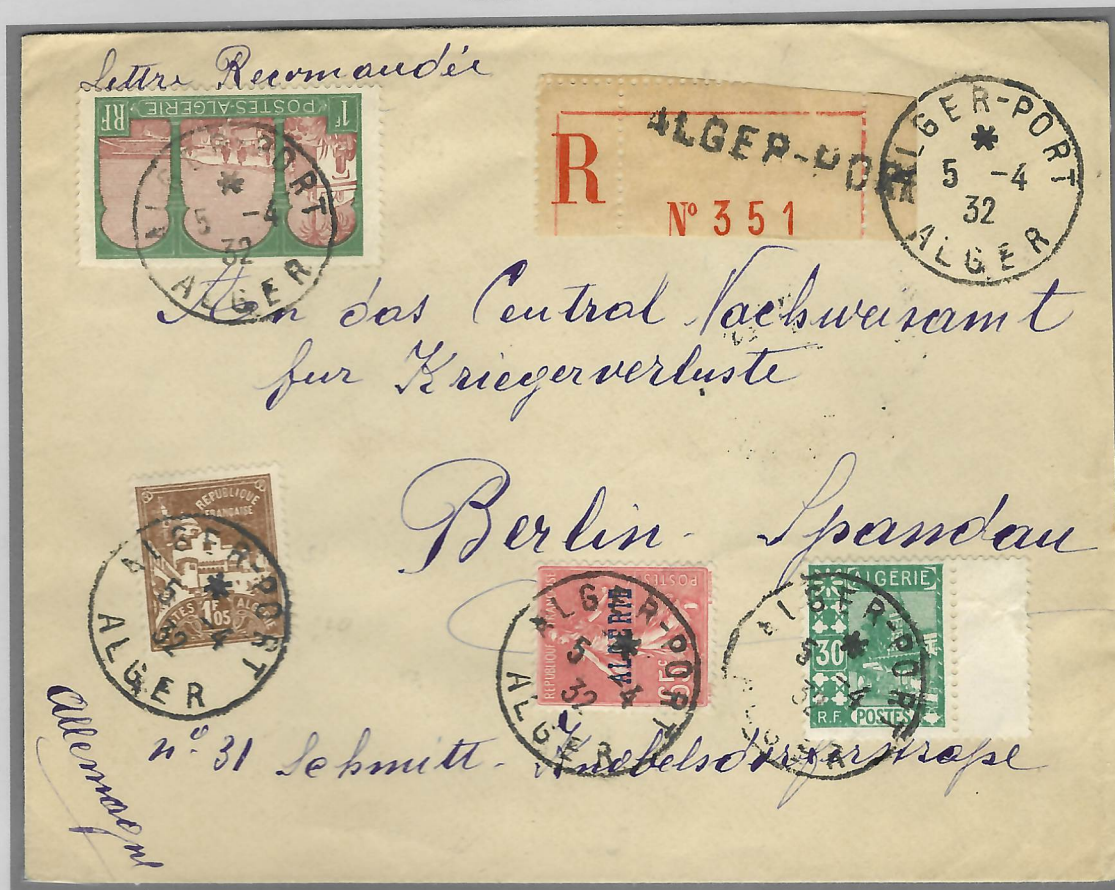 Lettre Recomandée
POSTES-ALGERIE
1F
RF
ALGER-PORT
5 -4
32
ALGER
R
ALGER-PORT
N° 351
ALGER-PORT
5 -4
32
ALGER
An das Central Nachweisamt
fur Kriegerverluste
Berlin - Spandau
REPUBLIQUE
FRANÇAISE
POSTES ALGERIE
1F
05
ALGER-PORT
5 -4
32
ALGER
REPUBLIQUE FRANÇAISE
POSTES
ALGÉRIE
65c
ALGER-PORT
5 -4
32
ALGER
ALGÉRIE
30
R.F. POSTES
ALGER-PORT
5 -4
32
ALGER
n° 31 Schmitt - Knobelsdorferstrasse
Allemagne